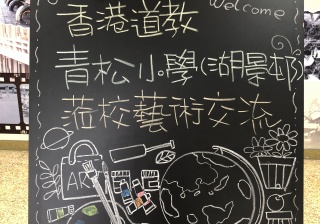 Welcome
香港道教
青松小學(湖景邨)
蒞校藝術交流
ART